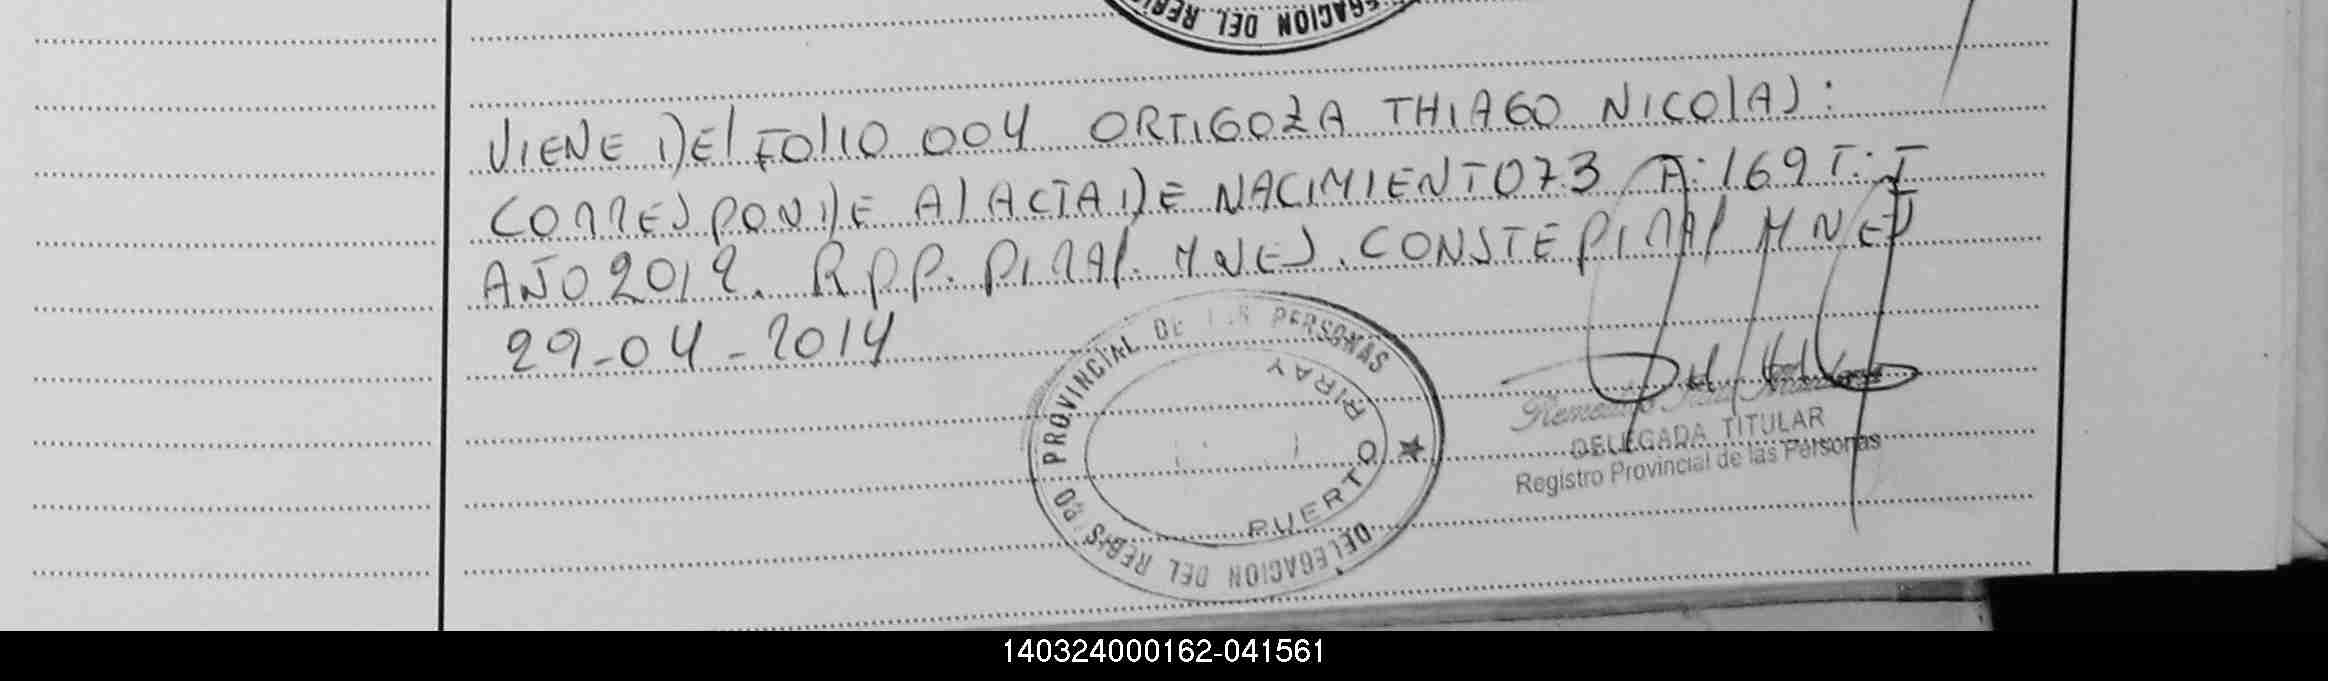 DELEGACION DEL REGIS
VIENE DEL FOLIO 004 ORTIGOZA THIAGO NICOLAS:
CORRESPONDE AL ACTA DE NACIMIENTO 73 A:169 T:I
AÑO 2012. R.P.P. PIRAY. MNES. CONSTE PIRAY MNES
29-04-2014
DELEGACION DEL REGISTRO PROVINCIAL DE LAS PERSONAS
PUERTO PIRAY
DELEGADA TITULAR
Registro Provincial de las Personas
140324000162-041561